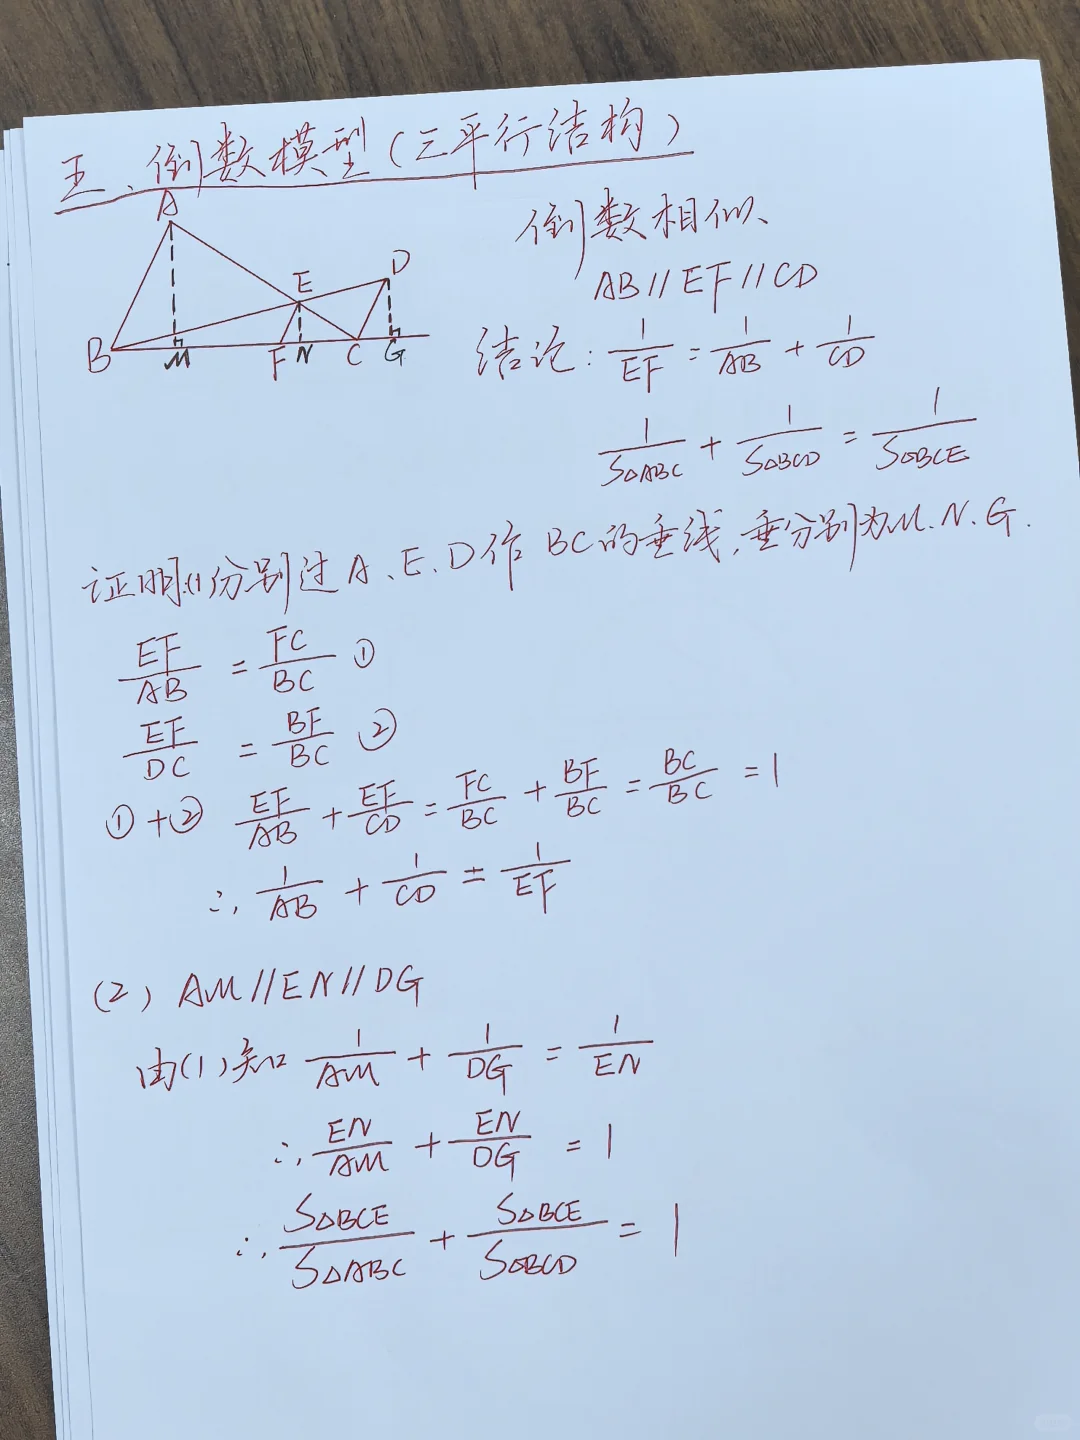 五、倒数模型(三平行结构)
A
E
D
B
M
F
N
C
G
倒数相似
AB//EF//CD
结论: 1/EF = 1/AB + 1/CD
1/S△ABC + 1/S△BCD = 1/S△BCE
证明:(1)分别过A、E、D作BC的垂线,垂分别为M.N.G.
EF/AB = FC/BC ①
EF/DC = BF/BC ②
①+② EF/AB + EF/CD = FC/BC + BF/BC = BC/BC = 1
∴ 1/AB + 1/CD = 1/EF
(2) AM//EN//DG
由(1)知 1/AM + 1/DG = 1/EN
∴ EN/AM + EN/DG = 1
∴ S△BCE/S△ABC + S△BCE/S△BCD = 1